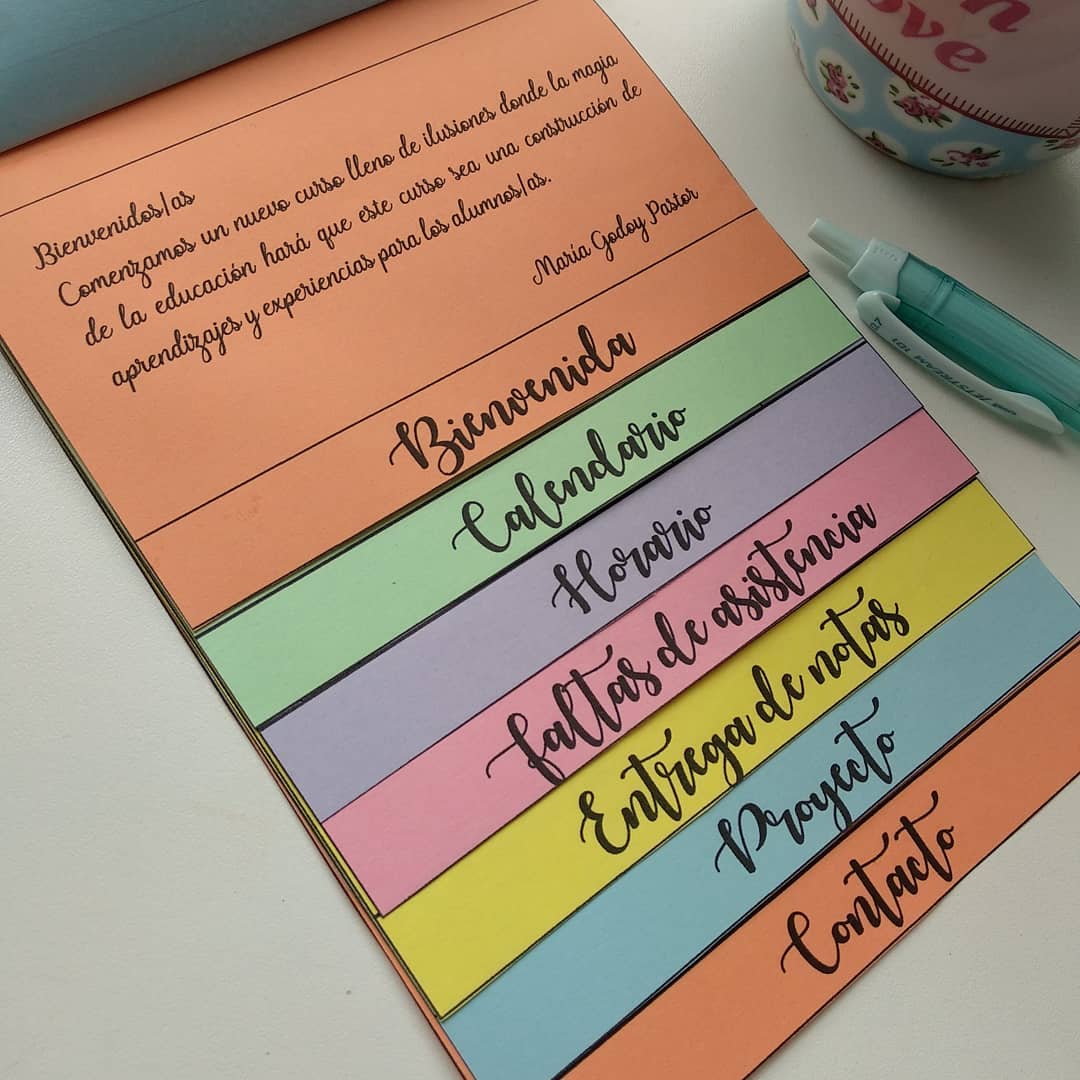 Bienvenidos/as
Comenzamos un nuevo curso lleno de ilusiones donde la magia
de la educación hará que este curso sea una construcción de
aprendizajes y experiencias para los alumnos/as.
María Godoy Pastor
Bienvenida
Calendario
Horario
faltas de asistencia
Entrega de notas
Proyecto
Contacto
ove
0.7
JETSTREAM 101